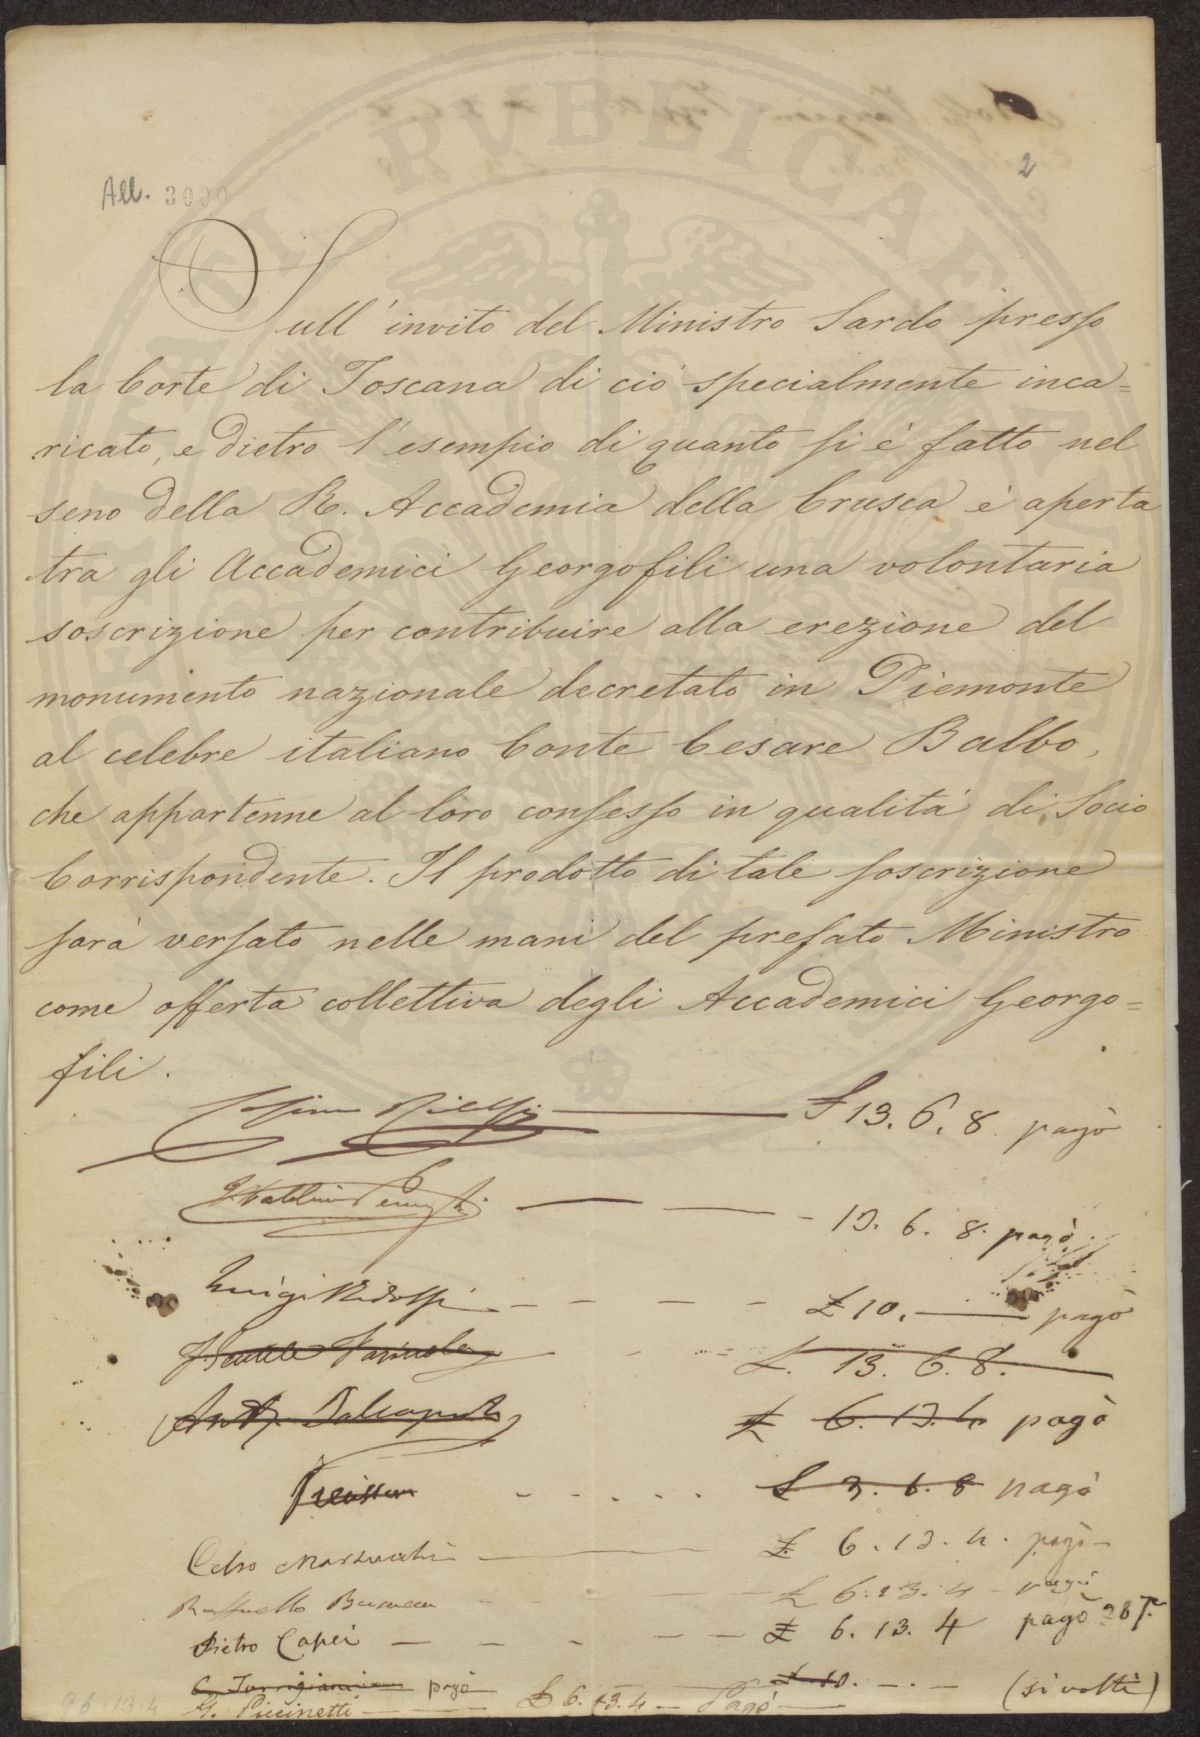 All. 3000
2
Sull' invito del Ministro Sardo presso
la Corte di Toscana di ciò specialmente inca=
ricato, e dietro l'esempio di quanto si è fatto nel
seno della R. Accademia della Crusca è aperta
tra gli Accademici Georgofili una volontaria
soscrizione per contribuire alla erezione del
monumento nazionale decretato in Piemonte
al celebre italiano Conte Cesare Balbo,
che appartenne al loro consesso in qualità di Socio
Corrispondente. Il prodotto di tale soscrizione
sarà versato nelle mani del prefato Ministro
come offerta collettiva degli Accademici Georgo=
fili.
Cosimo Ridolfi £ 13. 6. 8 pagò
Ubaldino Peruzzi 13. 6. 8. pagò
Luigi Ridolfi £ 10. pagò
£. 13. 6. 8.
£ 6. 13. 4 pagò
£ 3. 6. 8 pagò
Celso Marzucchi £ 6. 13. 4. pagò
Raffaello £ 6. 13. 4 pagò
Pietro Capei £ 6. 13. 4 pagò
C. Torrigiani pagò £ 10. (si volti)
G. Piccinetti £ 6. 13. 4 Pagò
96. 13. 4